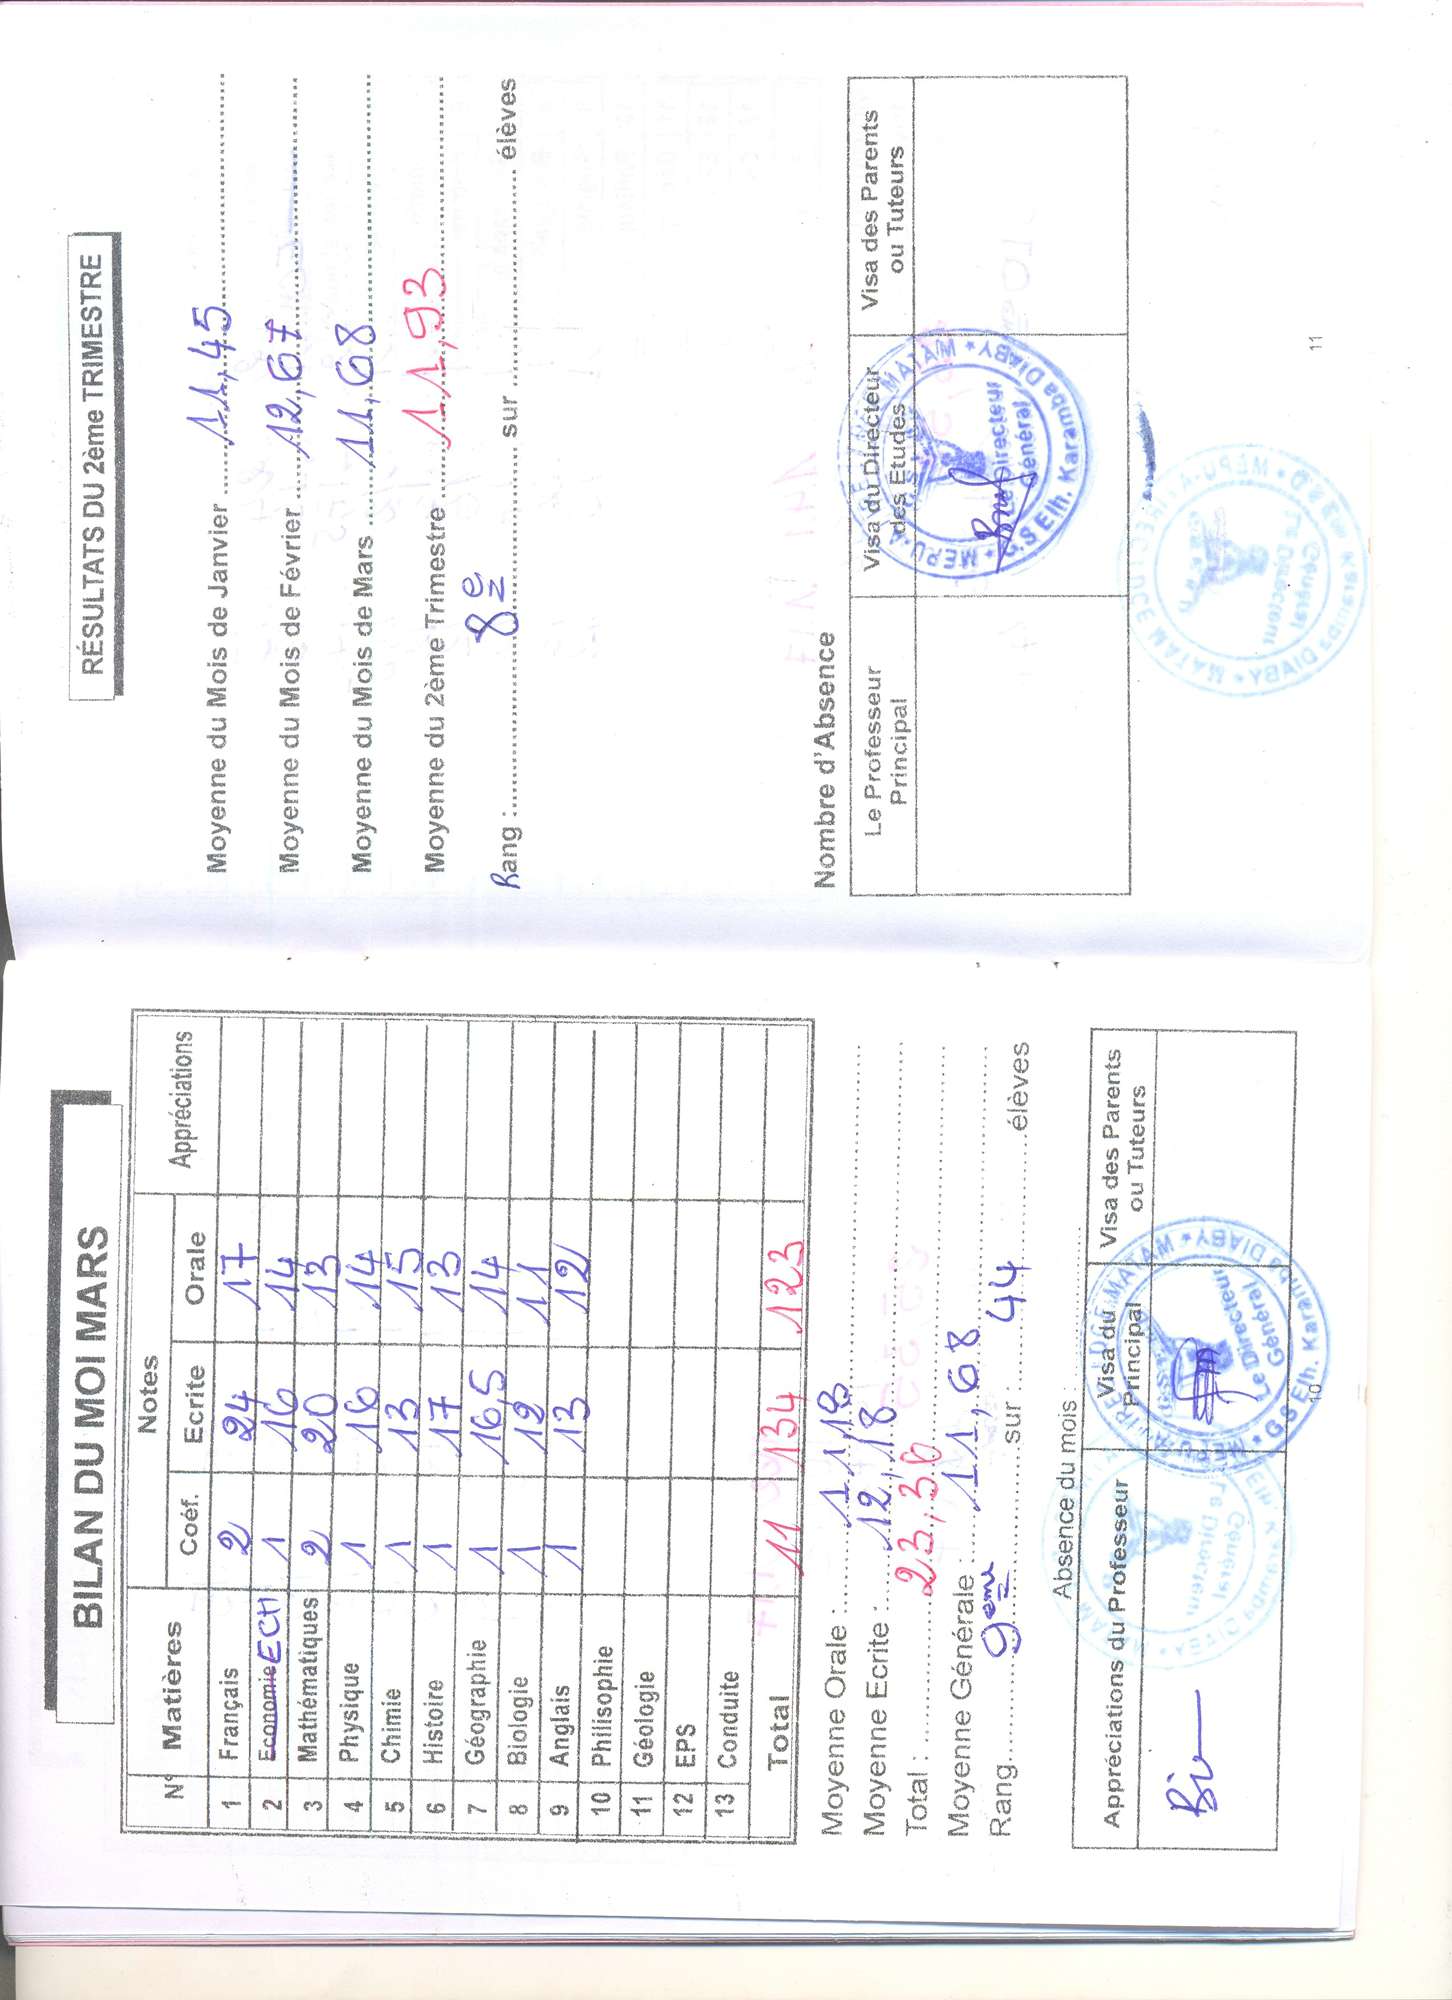 BILAN DU MOI MARS
N° Matières Notes Appréciations
Coéf. Ecrite Orale
1 Français 2 24 17
2 Economie ECM 1 16 14
3 Mathématiques 2 20 13
4 Physique 1 16 14
5 Chimie 1 13 15
6 Histoire 1 17 13
7 Géographie 1 16,5 14
8 Biologie 1 12 11
9 Anglais 1 13 12
10 Philisophie
11 Géologie
12 EPS
13 Conduite
Total 11 134 123
Moyenne Orale : 11,18
Moyenne Ecrite : 12,18
Total : 23,36
Moyenne Générale : 11,68
Rang 9eme sur 44 élèves
Absence du mois :
Appréciations du Professeur Visa du Principal Visa des Parents ou Tuteurs
Bien
MATAM
DIABY
Le Directeur Général
G.S Elh. Karamba
10
RÉSULTATS DU 2ème TRIMESTRE
Moyenne du Mois de Janvier 11,45
Moyenne du Mois de Février 12,67
Moyenne du Mois de Mars 11,68
Moyenne du 2ème Trimestre 11,93
Rang : 8e sur élèves
Nombre d'Absence
Le Professeur Principal Visa du Directeur des Etudes Visa des Parents ou Tuteurs
MATAM
Le Directeur Général
G.S Elh. Karamba DIABY
11